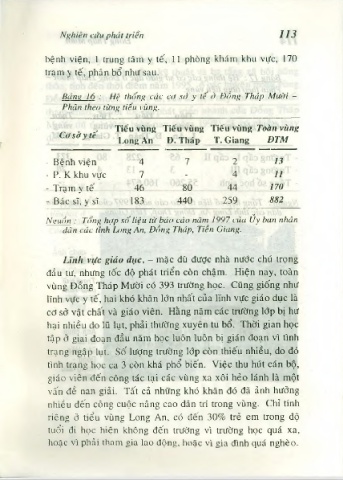 Nghiên cứu phát triển 113
bệnh viện, 1 trung tâm y tế, 11 phòng khám khu vực, 170
trạm y tế, phân bổ như sau.
Bảng 16 : Hệ thống các cơ sở y tế ở Đồng Tháp Mười –
Phân theo từng tiểu vùng.
Cơ sở y tế Tiểu vùng Long An Tiểu vùng Đ. Tháp Tiểu vùng T. Giang Toàn vùng ĐTM
- Bệnh viện 4 7 2 13
- P. K khu vực 7 - 4 11
- Trạm y tế 46 80 44 170
- Bác sĩ, y sĩ 183 440 259 882
Nguồn : Tổng hợp số liệu từ báo cáo năm 1997 của Ủy ban nhân
dân các tỉnh Long An, Đồng Tháp, Tiền Giang.
Lĩnh vực giáo dục, – mặc dù được nhà nước chú trọng
đầu tư, nhưng tốc độ phát triển còn chậm. Hiện nay, toàn
vùng Đồng Tháp Mười có 393 trường học. Cũng giống như
lĩnh vực y tế, hai khó khăn lớn nhất của lĩnh vực giáo dục là
cơ sở vật chất và giáo viên. Hằng năm các trường lớp bị hư
hại nhiều do lũ lụt, phải thường xuyên tu bổ. Thời gian học
tập ở giai đoạn đầu năm học luôn luôn bị gián đoạn vì tình
trạng ngập lụt. Số lượng trường lớp còn thiếu nhiều, do đó
tình trạng học ca 3 còn khá phổ biến. Việc thu hút cán bộ,
giáo viên đến công tác tại các vùng xa xôi hẻo lánh là một
vấn đề nan giải. Tất cả những khó khăn đó đã ảnh hưởng
nhiều đến công cuộc nâng cao dân trí trong vùng. Chỉ tính
riêng ở tiểu vùng Long An, có đến 30% trẻ em trong độ
tuổi đi học hiện không đến trường vì trường học quá xa,
hoặc vì phải tham gia lao động, hoặc vì gia đình quá nghèo.